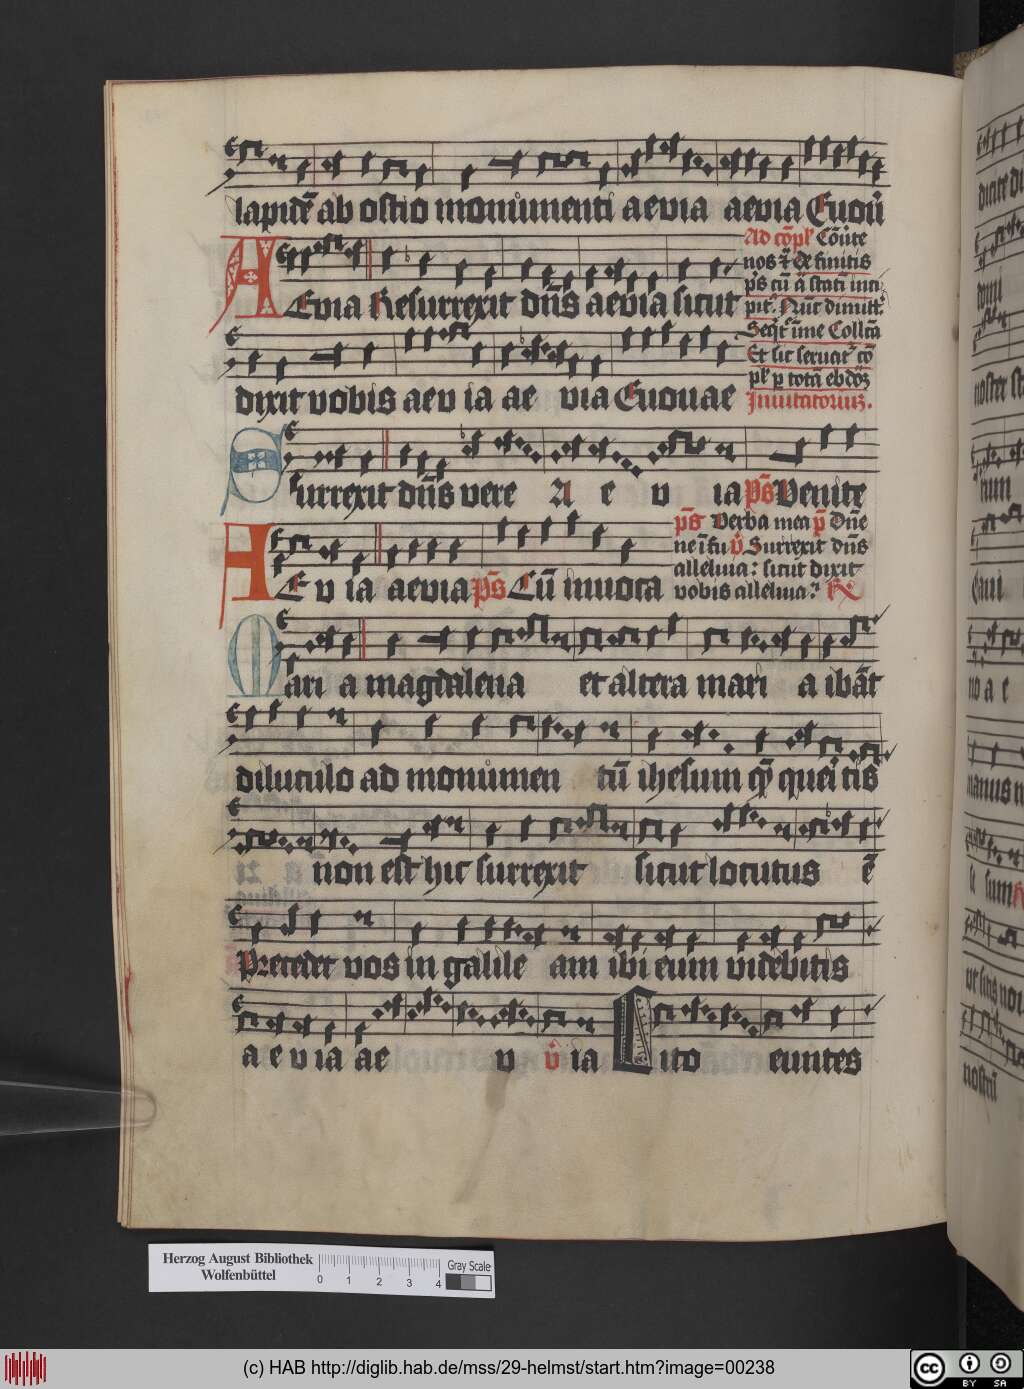 lapidē ab ostio monumenti aevia aevia Euoū
Ad cōpl' Cōute
nos & De finitis
AEvia Resurrexit dn̄s aevia sicut
Seqt' Colltā
Et sic seruat' cō
dixit vobis aev ia ae via Euouae
pl' p totā ebdō
Inuitatoriū.
Surrexit dn̄s vere A e v ia ps̄ Venite
ps̄ Verba mea p̄ Dn̄e
ne ī fu v̄ Surrexit dn̄s
alleluia: sicut dixit
AE v ia aevia ps̄ Cū inuoca
vobis alleluia. R
Mari a magdalena et altera mari a ibāt
diluculo ad monumen tū ihesum qd̄ queri tis
non est hic surrexit sicut locutus ē
Precedet vos in galile am ibi eum videbitis
a e v ia ae v v̄ ia Cito euntes
Herzog August Bibliothek
Wolfenbüttel
0 1 2 3 4
Gray Scale
(c) HAB http://diglib.hab.de/mss/29-helmst/start.htm?image=00238
cc BY SA